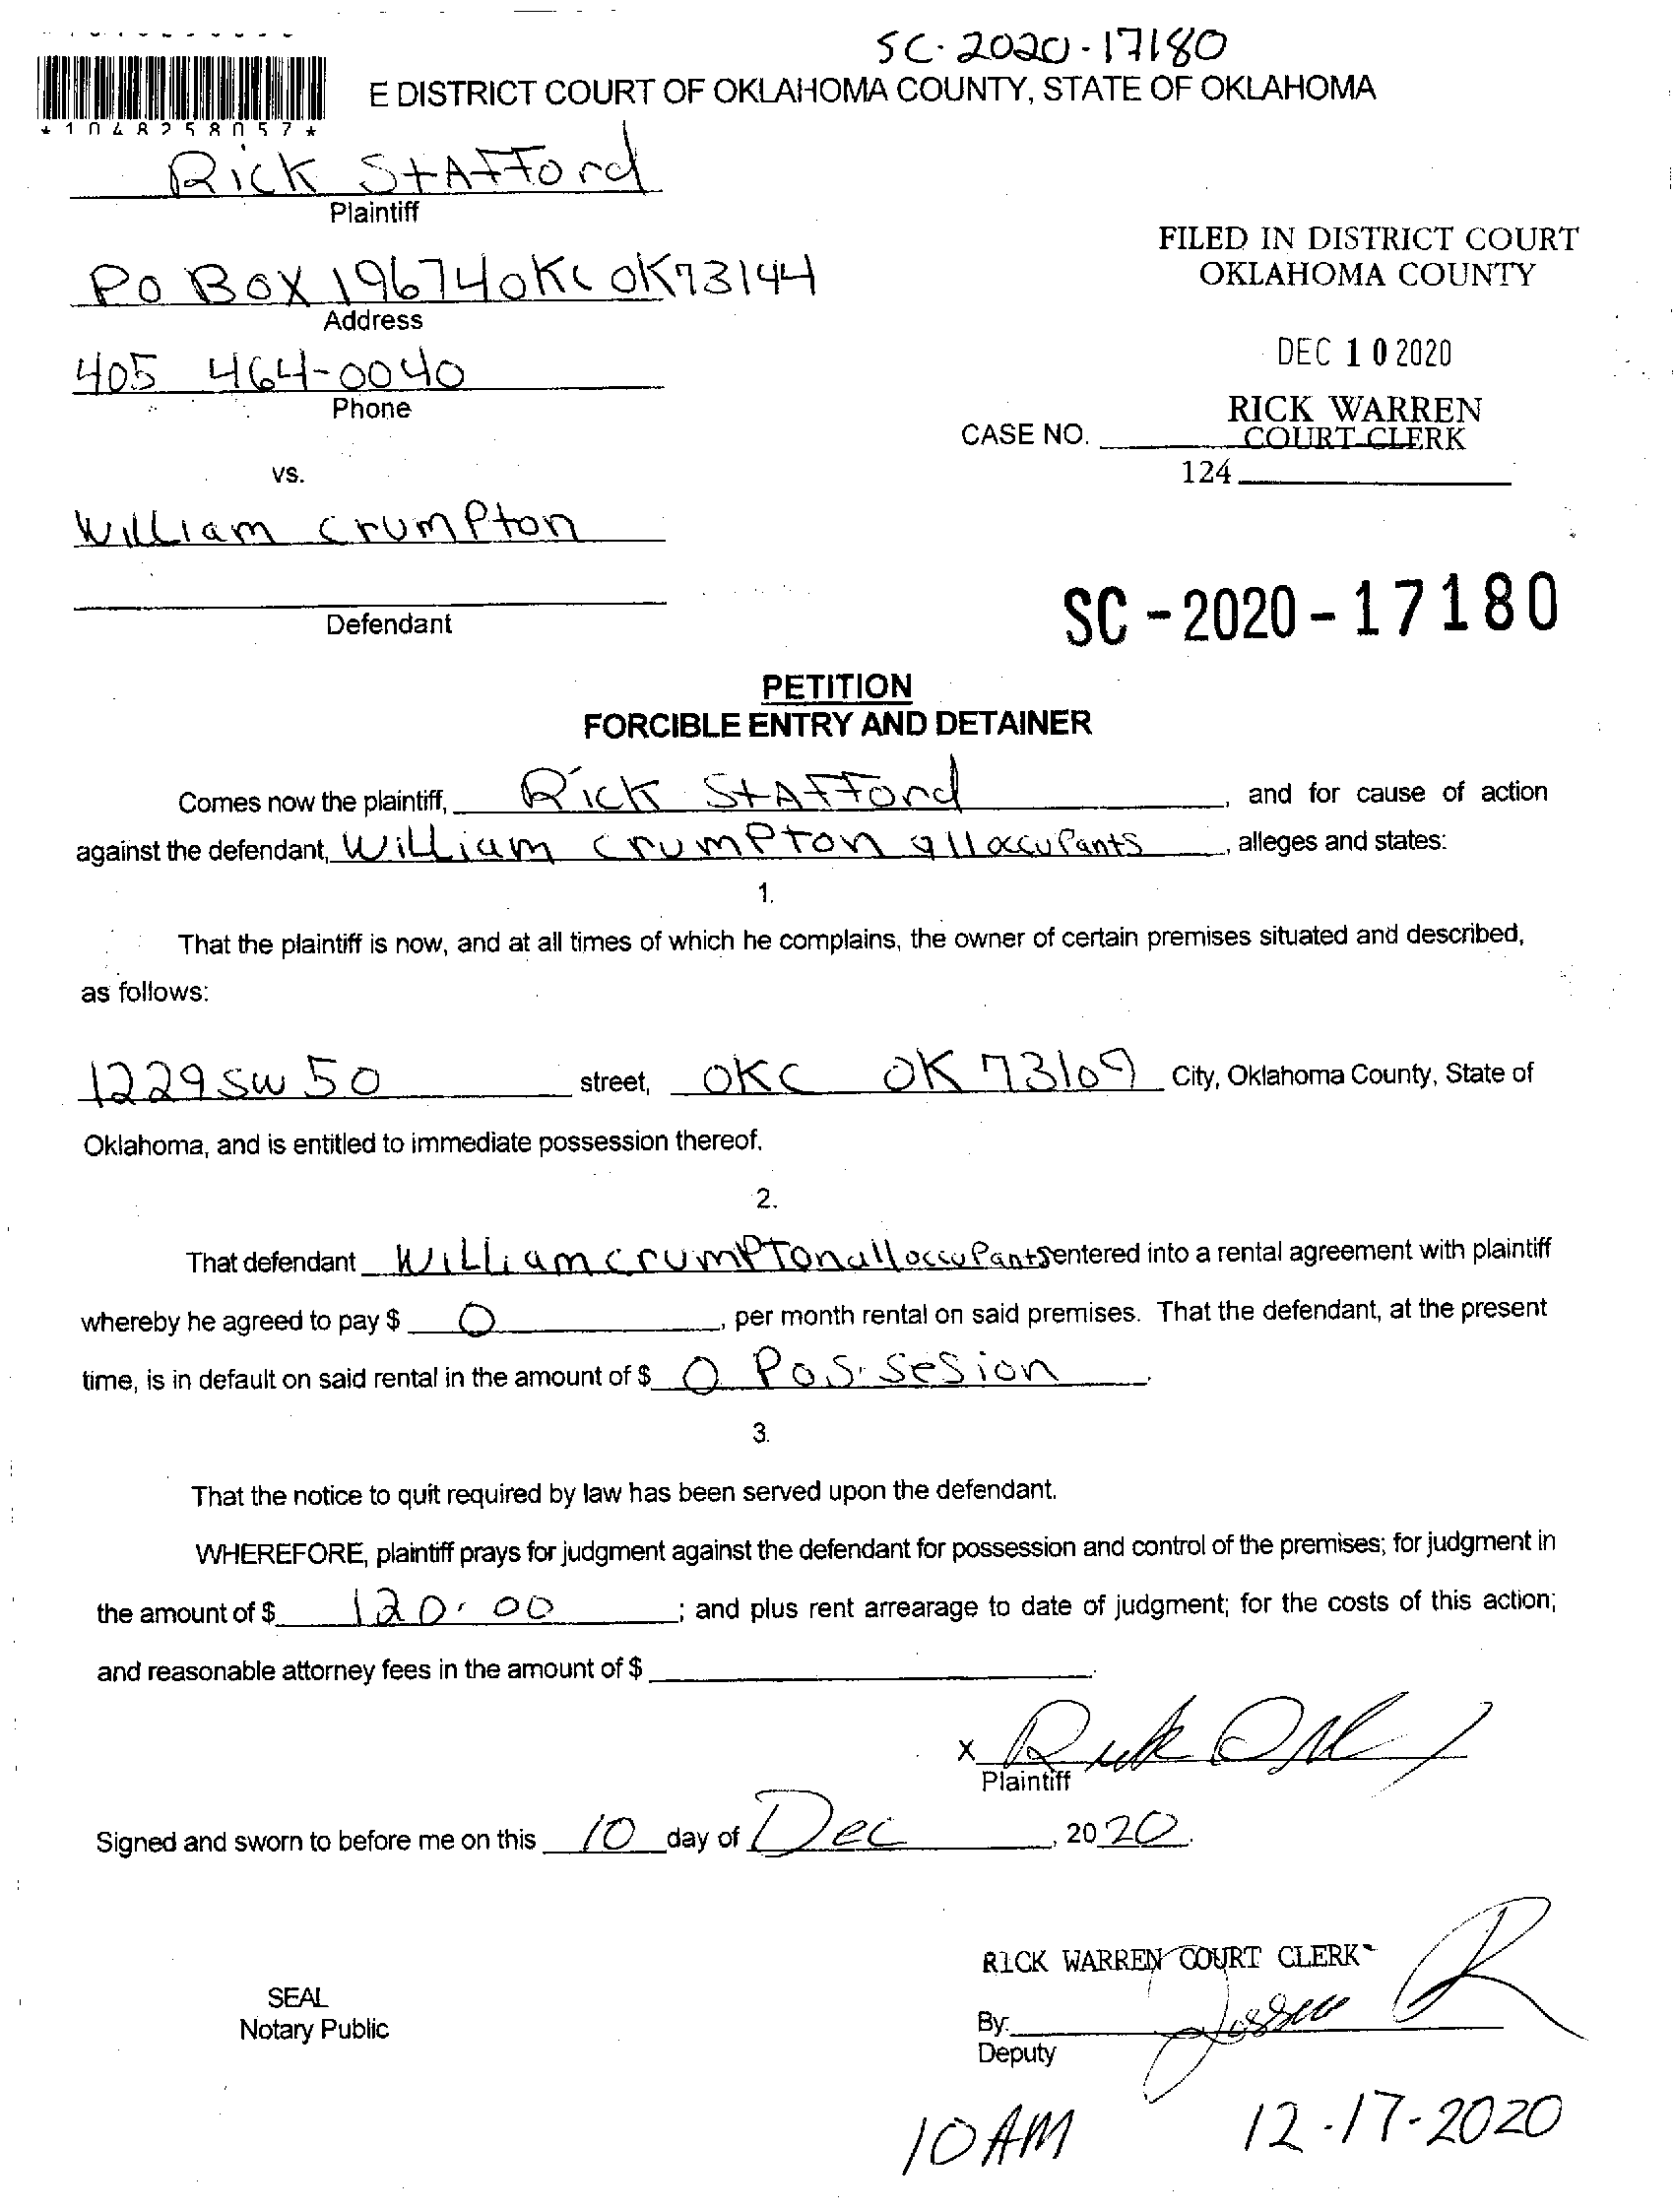 SC-2020-17180
E DISTRICT COURT OF OKLAHOMA COUNTY, STATE OF OKLAHOMA
*1048258057*
Rick Stafford
Plaintiff
PO BOX 19674 OKC OK 73144
Address
405 464-0040
Phone
FILED IN DISTRICT COURT
OKLAHOMA COUNTY
DEC 10 2020
RICK WARREN
COURT CLERK
CASE NO.
124
vs.
William Crumpton
Defendant
SC-2020-17180
PETITION
FORCIBLE ENTRY AND DETAINER
Comes now the plaintiff, Rick Stafford, and for cause of action
against the defendant, William Crumpton all occupants, alleges and states:
1.
That the plaintiff is now, and at all times of which he complains, the owner of certain premises situated and described,
as follows:
1229 SW 50 street, OKC OK 73109 City, Oklahoma County, State of
Oklahoma, and is entitled to immediate possession thereof.
2.
That defendant William Crumpton all occupants entered into a rental agreement with plaintiff
whereby he agreed to pay $ 0, per month rental on said premises. That the defendant, at the present
time, is in default on said rental in the amount of $ 0 Possesion.
3.
That the notice to quit required by law has been served upon the defendant.
WHEREFORE, plaintiff prays for judgment against the defendant for possession and control of the premises; for judgment in
the amount of $ 120.00; and plus rent arrearage to date of judgment; for the costs of this action;
and reasonable attorney fees in the amount of $
x
Plaintiff
Signed and sworn to before me on this 10 day of Dec, 2020.
RICK WARREN COURT CLERK
SEAL
Notary Public
By:
Deputy
10 AM 12-17-2020